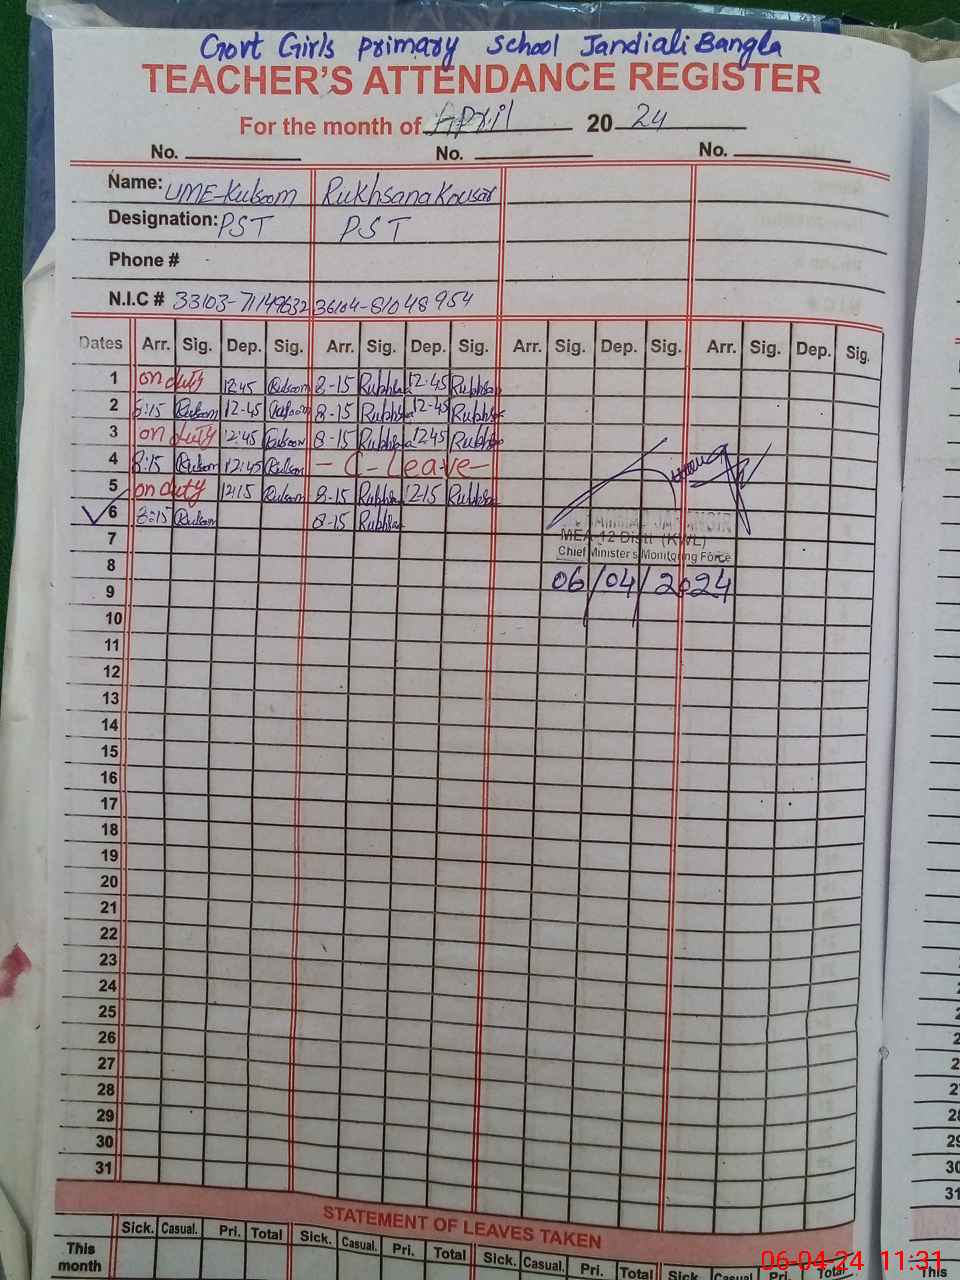 Govt Girls primary school Jandiali Bangla
TEACHER'S ATTENDANCE REGISTER
For the month of April 2024
No. No. No.
Name: UME-Kulsoom Rukhsana Kousar
Designation: PST PST
Phone #
N.I.C # 33103-71149632 36104-81048954
Dates Arr. Sig. Dep. Sig. Arr. Sig. Dep. Sig. Arr. Sig. Dep. Sig. Arr. Sig. Dep. Sig.
1 on duty 12:45 Kulsoom 8-15 Rukhsa 12-45 Rukhsa
2 8:15 Kulsoom 12-45 Kulsoom 8-15 Rukhsa 12-45 Rukhsa
3 on duty 12:45 Kulsoom 8-15 Rukhsa 12.45 Rukhsa
4 8:15 Kulsoom 12:45 Kulsom - C - Leave -
5 on duty 12:15 Kulsoom 8-15 Rukhsa 12-15 Rukhsa
6 8:15 Kulsoom 8-15 Rukhsa
7
MEA-12 Distt (KWL)
Chief Minister's Monitoring Force
8
06/04/2024
9
10
11
12
13
14
15
16
17
18
19
20
21
22
23
24
25
26
27
28
29
30
31
STATEMENT OF LEAVES TAKEN
Sick. Casual. Pri. Total Sick. Casual. Pri. Total Sick. Casual. Pri. Total Sick. Casual Pri. Total
This month
This
06-04-24 11:31